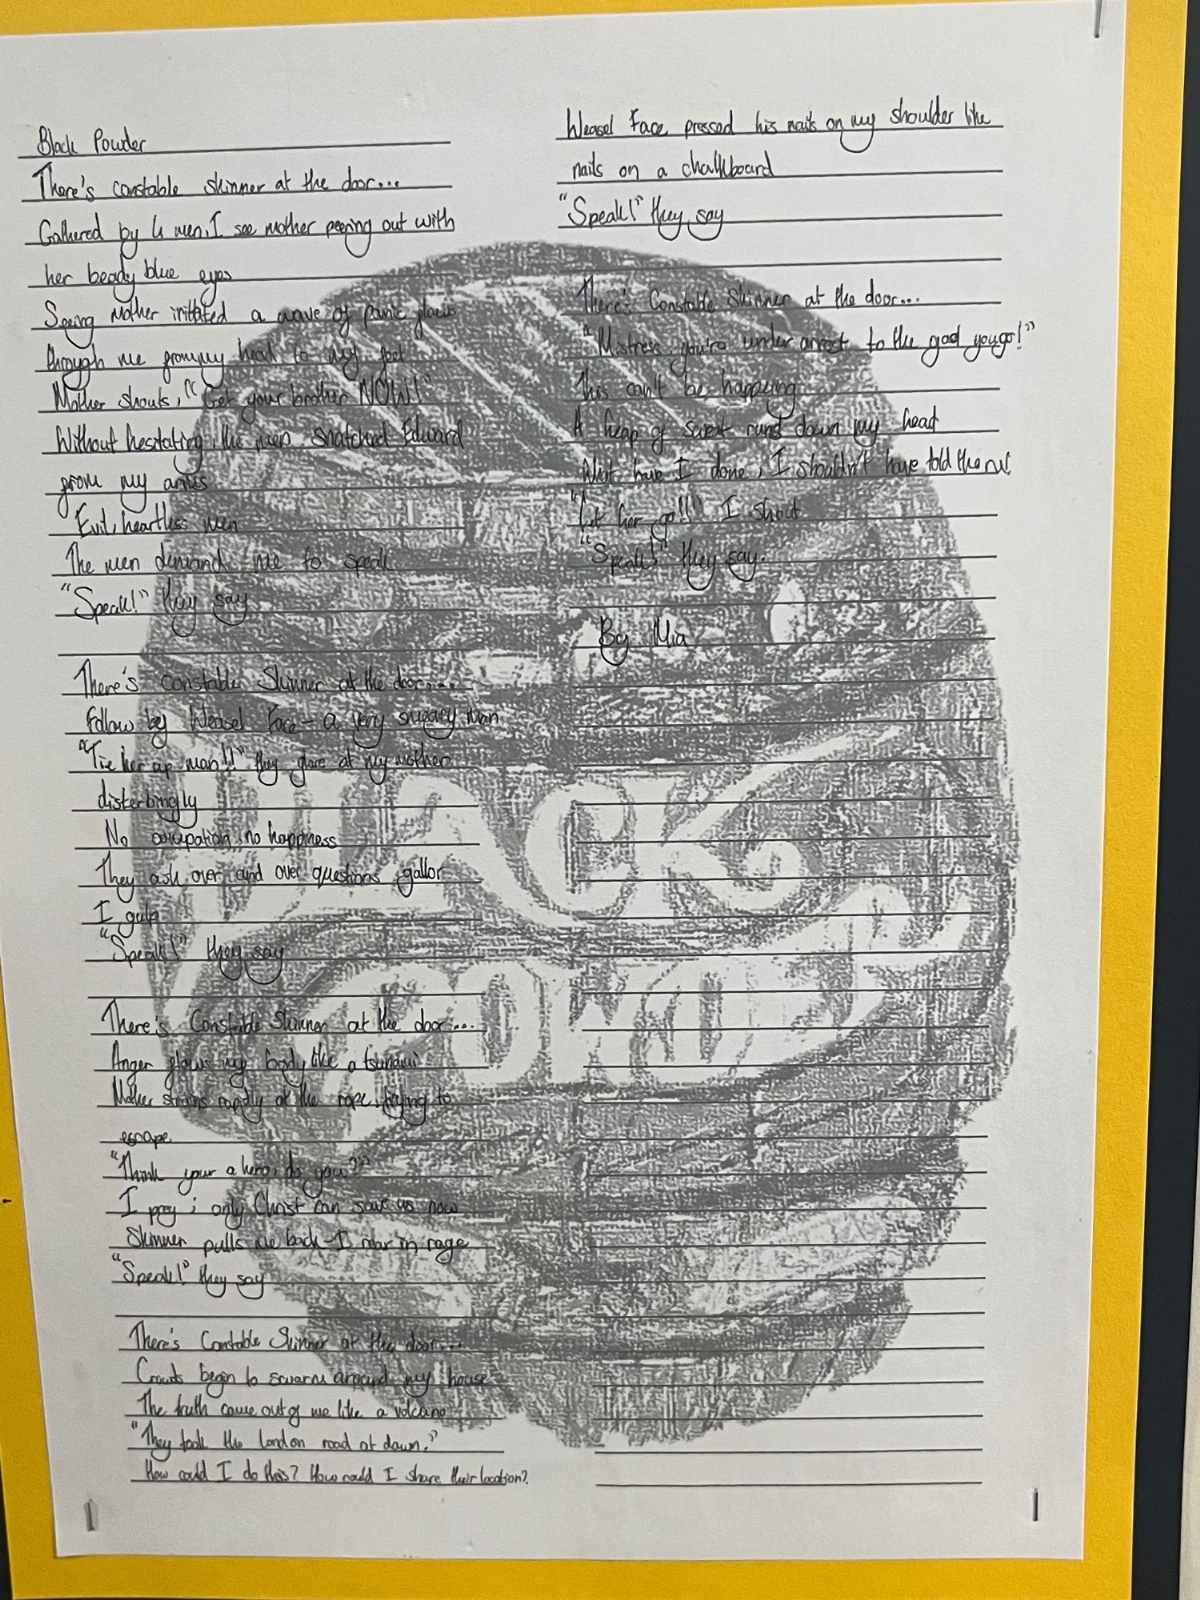 Black Powder
There's constable skinner at the door...
Gathered by 4 men, I see mother peering out with
her beady blue eyes
Seeing Mother irritated a wave of panic flows
through me from my head to my feet
Mother shouts, "Get your brother NOW!"
Without hesitating, the men snatched Edward
from my arms
Evil, heartless men
The men demand me to speak
"Speak!" they say
There's constable Skinner at the door....
Follow by Weasel Face - a very sugary man
"Tie her up man!!" they glare at my mother
disterbingly
No occupation, no happiness
They ask over and over questions gallor
I gulp
"Speak!" they say
There's Constable Skinner at the door...
Anger flows my body like a tsunami
Mother strains rapidly at the rope, trying to
escape
"Think your a hero, do you?"
I pray; only Christ can save us now
Skinner pulls me back - I roar in rage
"Speak!" they say
There's Constable Skinner at the door....
Crowds begin to swarm around my house
The truth came out of me like a volcano
"They took the London road at dawn."
How could I do this? How could I share their location?
Weasel Face pressed his nails on my shoulder like
nails on a chalkboard
"Speak!" they say
There's Constable Skinner at the door...
"Mistress, you're under arrest to the gaol you go!"
This can't be happening
A heap of sweat runs down my head
What have I done, I shouldn't have told them
"Let her go!!" I shout
"Speak!" they say.
By Mia
BLACK
POWDER